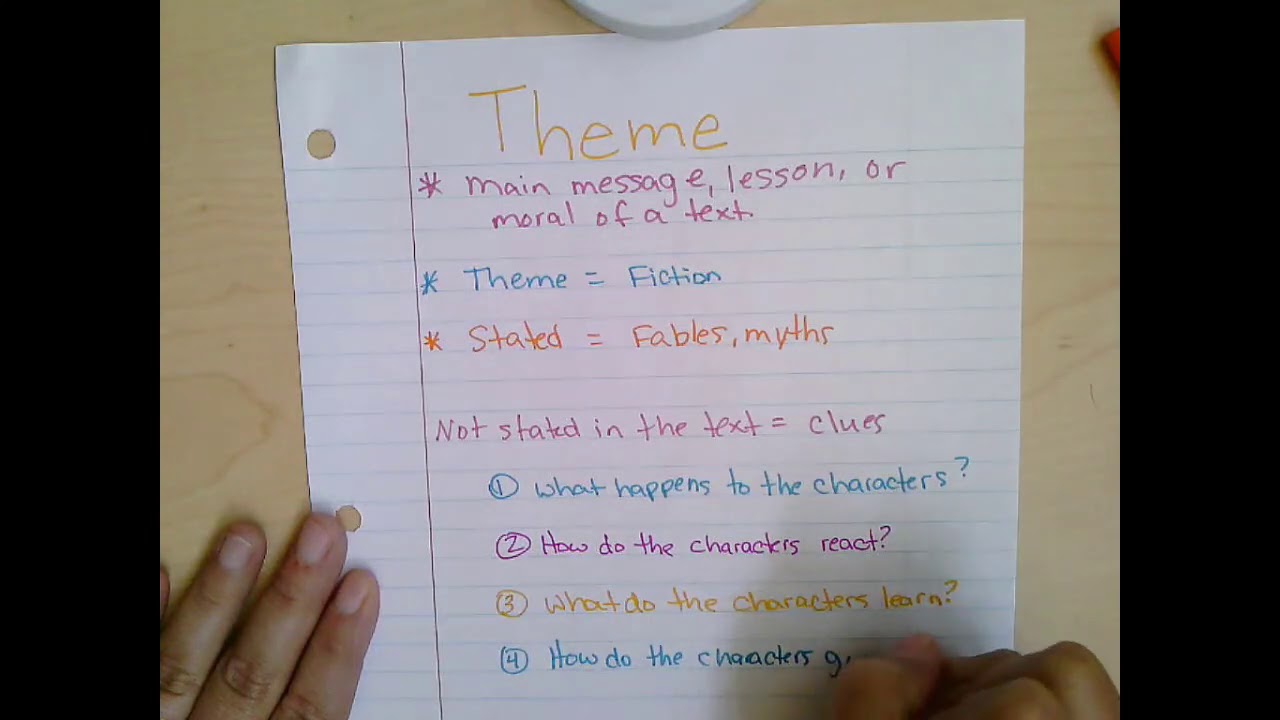 Theme
* main message, lesson, or
moral of a text.
* Theme = Fiction
* Stated = Fables, myths
Not stated in the text = clues
① What happens to the characters?
② How do the characters react?
③ What do the characters learn?
④ How do the characters